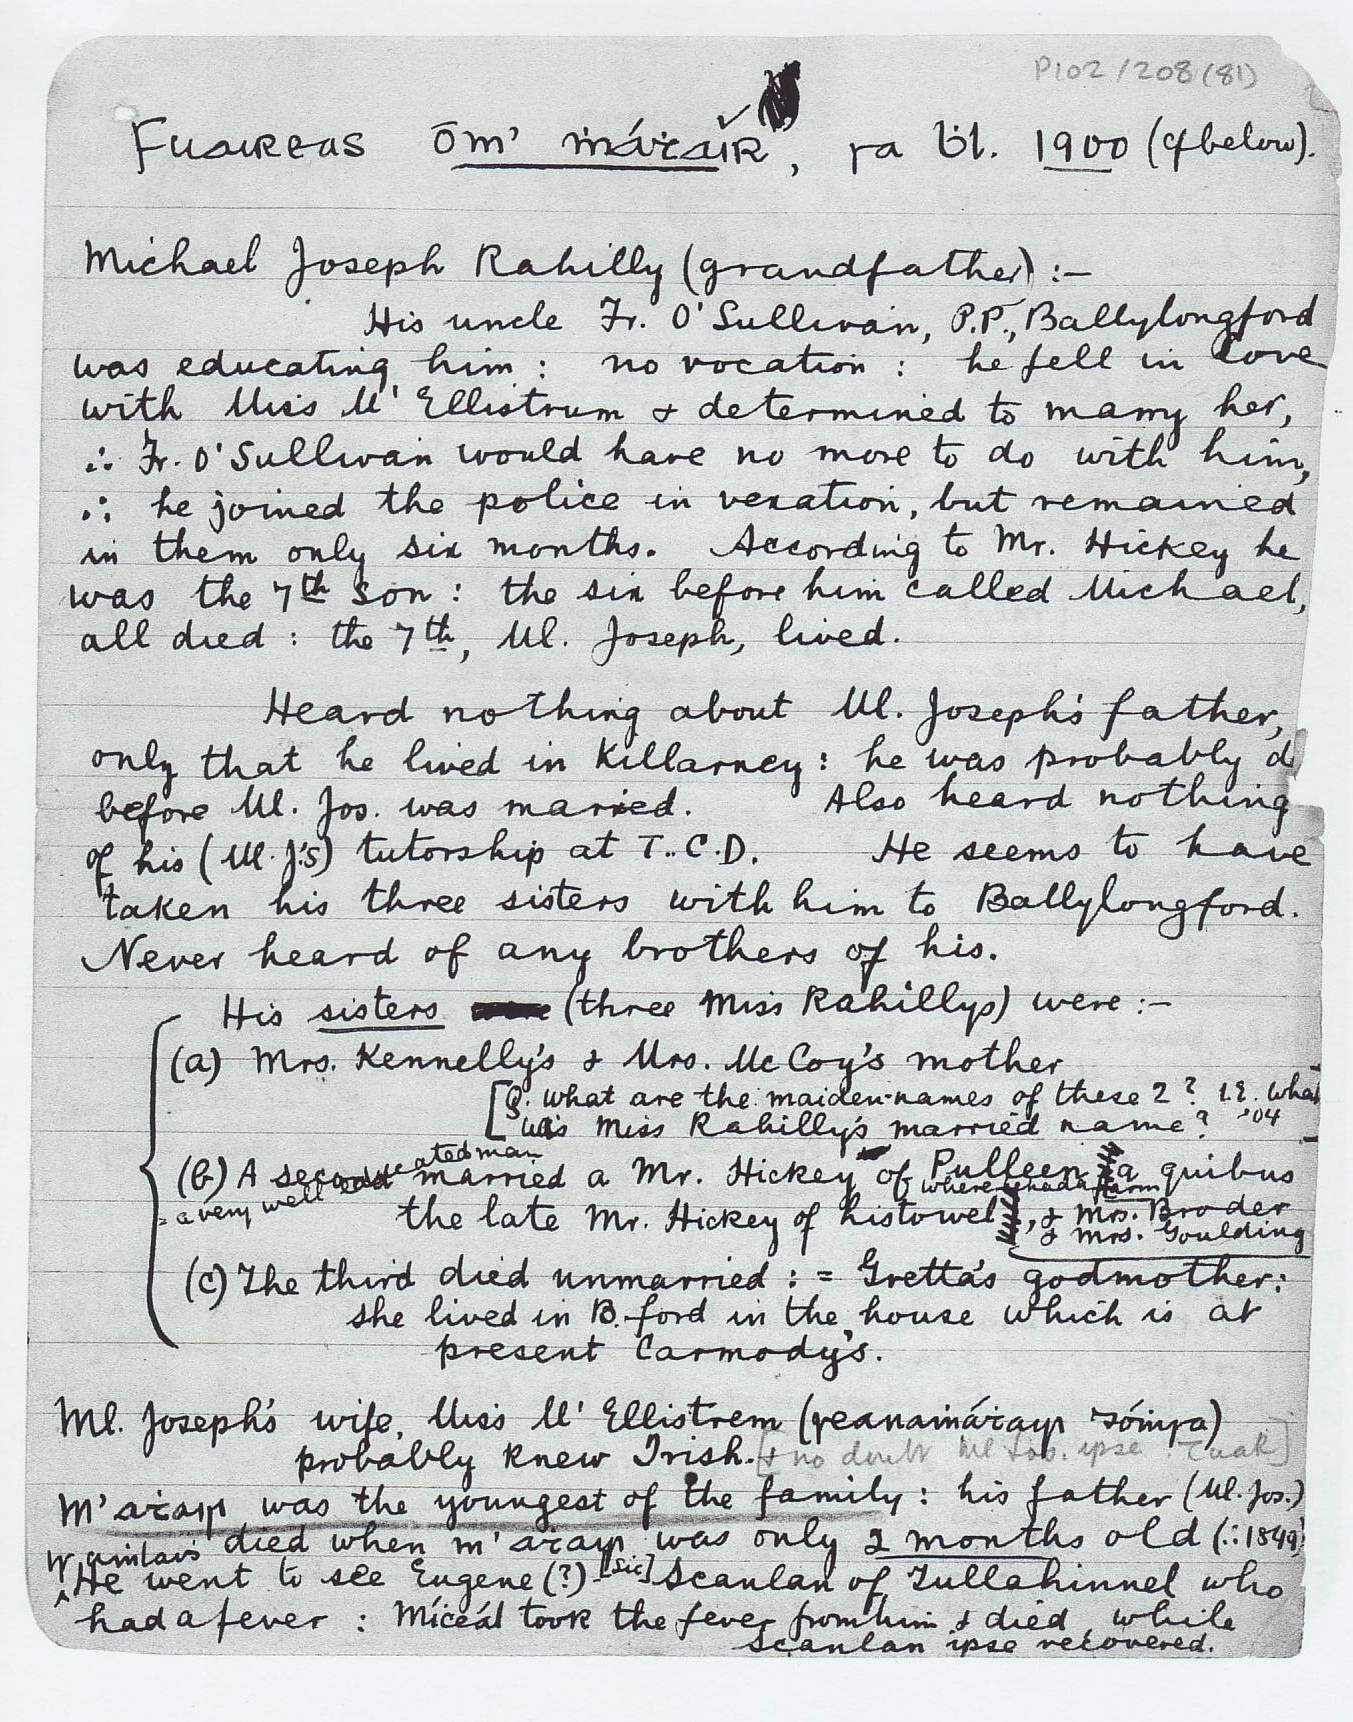 P102/208(81)
Fuaireas óm' ṁáṫair, sa bl. 1900 (cf below).
Michael Joseph Rahilly (grandfather) :-
His uncle Fr. O'Sullivan, P.P., Ballylongford
was educating him : no vocation : he fell in love
with Miss M'Ellistrum & determined to marry her,
∴ Fr. O'Sullivan would have no more to do with him,
∴ he joined the police in vexation, but remained
in them only six months. According to Mr. Hickey he
was the 7th son : the six before him called Michael,
all died : the 7th, Ml. Joseph, lived.
Heard nothing about Ml. Joseph's father,
only that he lived in Killarney : he was probably d
before Ml. Jos. was married. Also heard nothing
of his (Ml. J's) tutorship at T.C.D. He seems to have
taken his three sisters with him to Ballylongford.
Never heard of any brothers of his.
His sisters (three Miss Rahillys) were :-
(a) Mrs. Kennelly's & Mrs. McCoy's mother
[Q. what are the maiden-names of these 2? I.e. what
was Miss Rahilly's married name? '04
(b) A second married a Mr. Hickey of Pulleen a quibus
= a very well educated man
where he had a farm
the late Mr. Hickey of Listowel, & Mrs. Broder
& Mrs. Goulding
(c) The third died unmarried : = Gretta's godmother :
she lived in B.ford in the house which is at
present Carmody's.
Ml. Joseph's wife, Miss M'Ellistrem (seanaṁáṫair dóiḃsa)
probably knew Irish. [& no doubt Ml Jos. ipse
m'aṫair was the youngest of the family : his father (Ml. Jos.)
died when m'aṫair was only 2 months old (∴ 1849)
aṁlaiḋ
He went to see Eugene (?) [sic] Scanlan of Tullahinnel who
had a fever : Míceál took the fever from him & died, while
Scanlan ipse recovered.